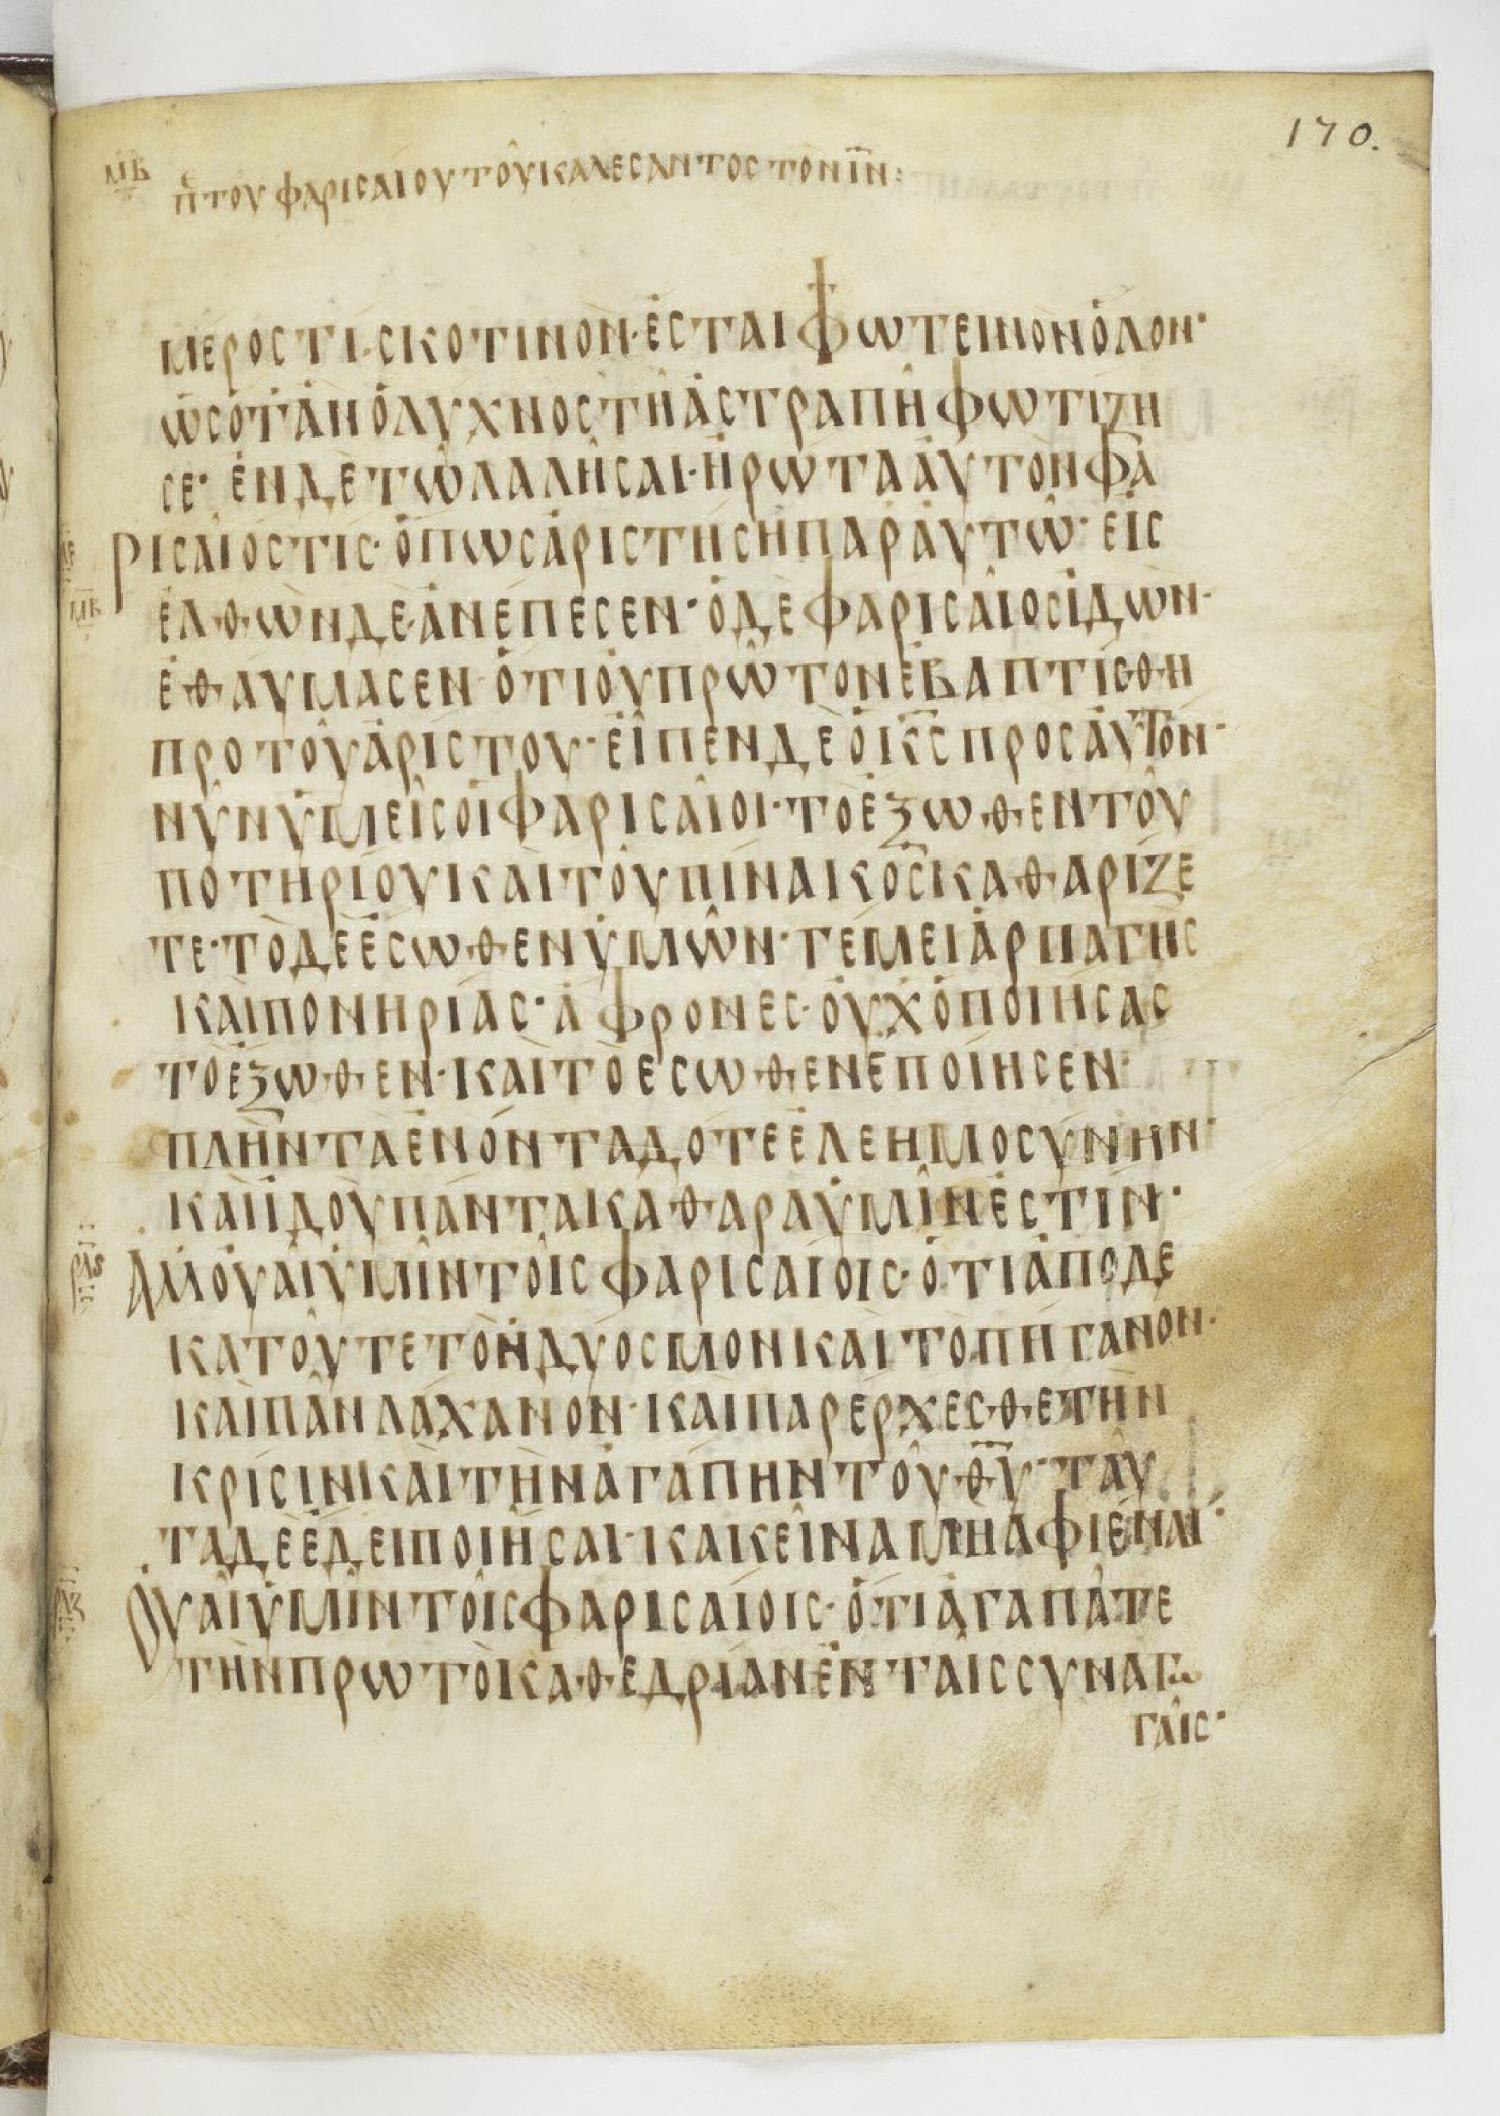 170.
ΜΒ ΠΕ ΤΟΥ ΦΑΡΙСΑΙΟΥ ΤΟΥ ΚΑΛΕСΑΝΤΟС ΤΟΝ ΙΝ:
ΜΕΡΟСΤΙ·СΚΟΤΙΝΟΝ·ΕСΤΑΙΦΩΤΕΙΝΟΝΟΛΟΝ·
ΩСΟΤΑΝΟΛΥΧΝΟСΤΗΑСΤΡΑΠΗΦΩΤΙΖΗ
СΕ· ΕΝΔΕΤΩΛΑΛΗСΑΙ·ΗΡΩΤΑΑΥΤΟΝΦΑ
ΡΙСΑΙΟСΤΙС·ΟΠΩСΑΡΙСΤΗСΗΠΑΡΑΥΤΩ·ΕΙС
ΜΒ
ΕΛΘΩΝΔΕΑΝΕΠΕСΕΝ·ΟΔΕΦΑΡΙСΑΙΟСΙΔΩΝ·
ΕΘΑΥΜΑСΕΝ·ΟΤΙΟΥΠΡΩΤΟΝΕΒΑΠΤΙСΘΗ
ΠΡΟΤΟΥΑΡΙСΤΟΥ·ΕΙΠΕΝΔΕΟΚСΠΡΟСΑΥΤΟΝ·
ΝΥΝΥΜΕΙСΟΙΦΑΡΙСΑΙΟΙ·ΤΟΕΞΩΘΕΝΤΟΥ
ΠΟΤΗΡΙΟΥΚΑΙΤΟΥΠΙΝΑΙΚΟСΚΑΘΑΡΙΖΕ
ΤΕ·ΤΟΔΕΕСΩΘΕΝΥΜΩΝ·ΓΕΜΕΙΑΡΠΑΓΗС
ΚΑΙΠΟΝΗΡΙΑС·ΑΦΡΟΝΕС·ΟΥΧΟΠΟΙΗСΑС
ΤΟΕΞΩΘΕΝ·ΚΑΙΤΟΕСΩΘΕΝΕΠΟΙΗСΕΝ·
ΠΛΗΝΤΑΕΝΟΝΤΑΔΟΤΕΕΛΕΗΜΟСΥΝΗΝ·
ΚΑΙΙΔΟΥΠΑΝΤΑΚΑΘΑΡΑΥΜΙΝΕСΤΙΝ·
ΡΛϚ
ΑΛΛΟΥΑΙΥΜΙΝΤΟΙСΦΑΡΙСΑΙΟΙС·ΟΤΙΑΠΟΔΕ
ΚΑΤΟΥΤΕΤΟΝΔΥΟСΜΟΝΚΑΙΤΟΠΗΓΑΝΟΝ·
ΚΑΙΠΑΝΛΑΧΑΝΟΝ·ΚΑΙΠΑΡΕΡΧΕСΘΕΤΗΝ
ΚΡΙСΙΝΚΑΙΤΗΝΑΓΑΠΗΝΤΟΥΘΥ·ΤΑΥ
ΤΑΔΕΕΔΕΙΠΟΙΗСΑΙ·ΚΑΚΕΙΝΑΜΗΑΦΙΕΝΑΙ·
ΡΛΖ
ΟΥΑΙΥΜΙΝΤΟΙСΦΑΡΙСΑΙΟΙС·ΟΤΙΑΓΑΠΑΤΕ
ΤΗΝΠΡΩΤΟΚΑΘΕΔΡΙΑΝΕΝΤΑΙССΥΝΑΓΩ
ΓΑΙС·